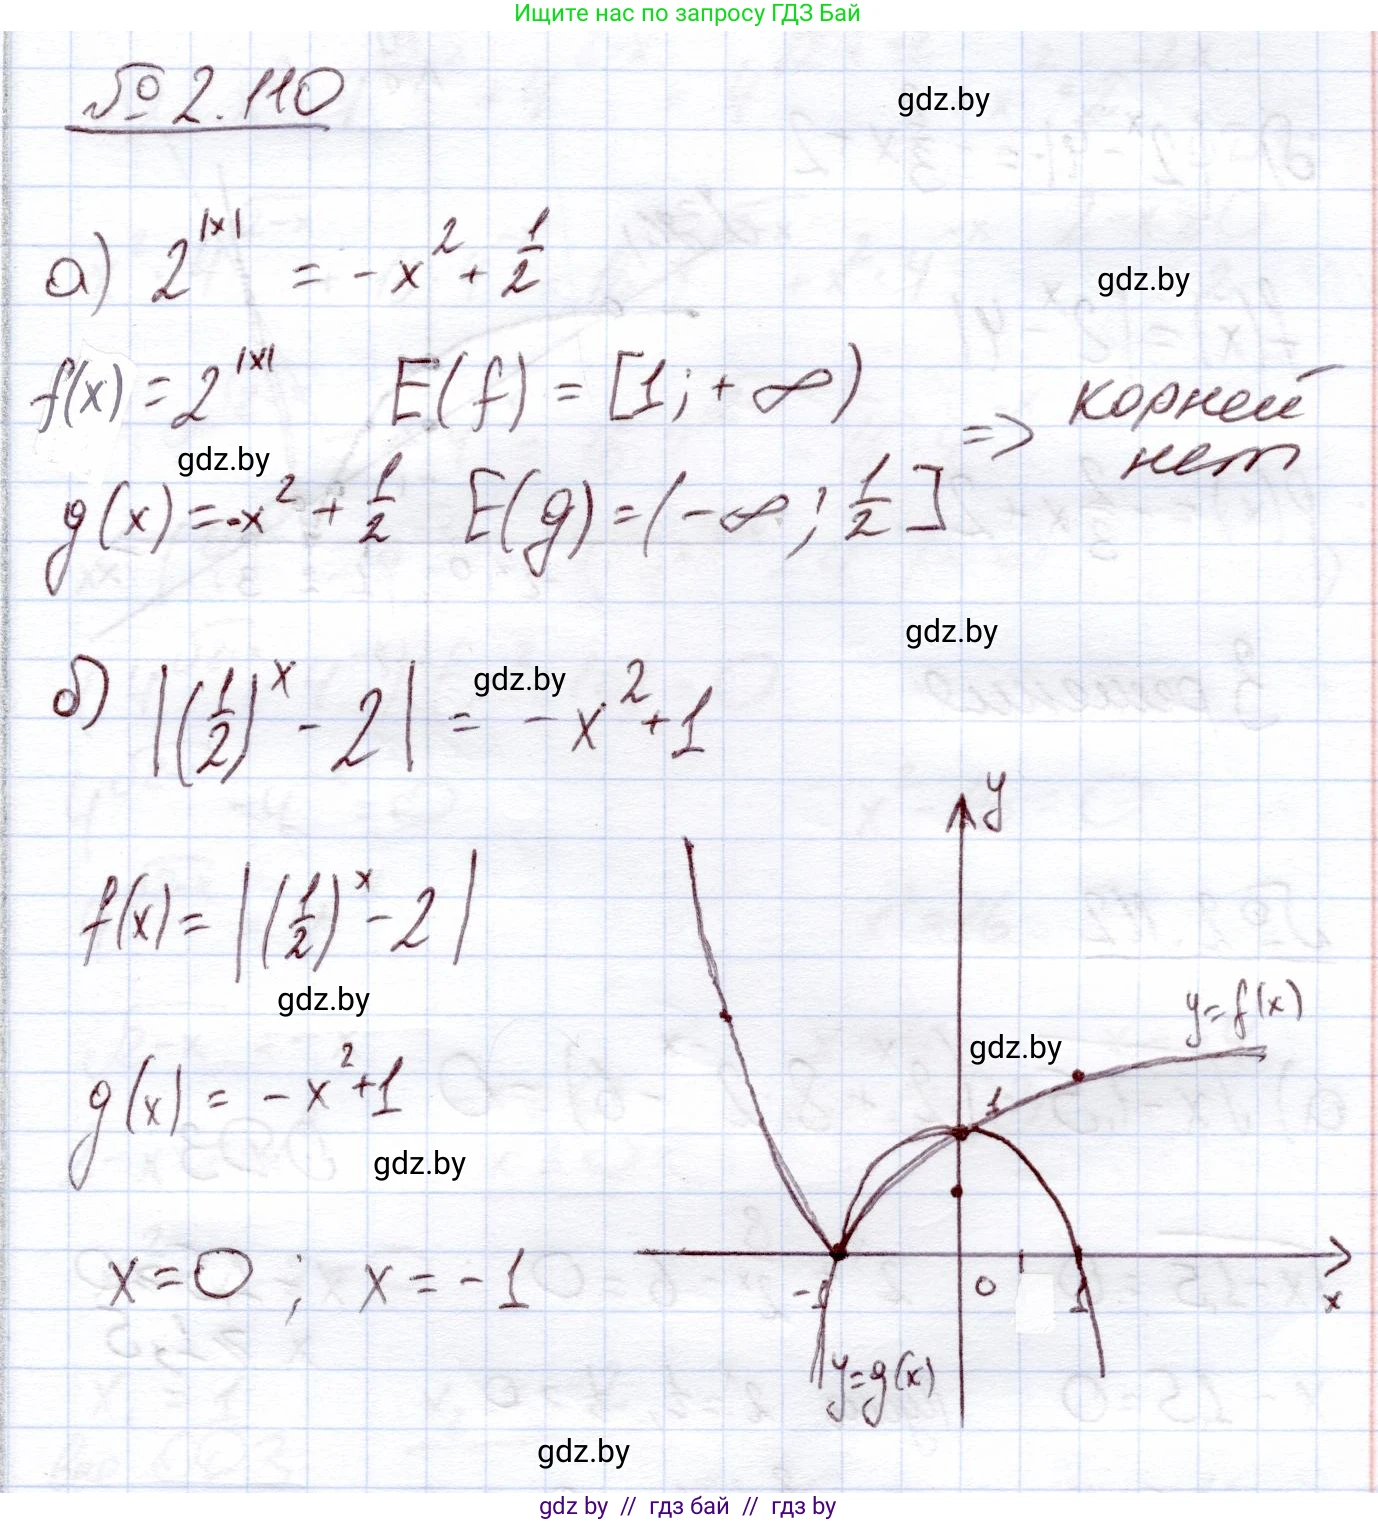 Ищите нас по запросу ГДЗ Бай
№ 2.110
gdz.by
а) 2^|x| = -x² + 1/2
gdz.by
f(x) = 2^|x| E(f) = [1; +∞)
=> корней нет
gdz.by
g(x) = -x² + 1/2 E(g) = (-∞; 1/2]
gdz.by
б) |(1/2)^x - 2| = -x² + 1
gdz.by
y
f(x) = |(1/2)^x - 2|
gdz.by
y=f(x)
gdz.by
1
g(x) = -x² + 1
gdz.by
x = 0 ; x = -1
-1 0 1 x
y=g(x)
gdz.by
gdz by // гдз бай // гдз by